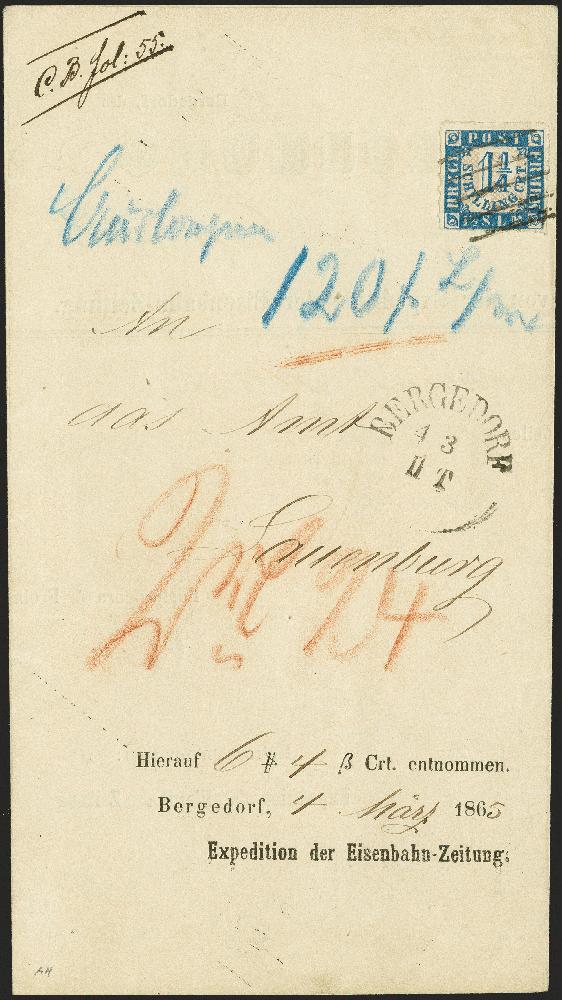 C. B. fol: 55.
POST
1¼
SCHILLING CRT.
An
120
das Amt
BERGEDORF
4 3
II T
Lauenburg
Hierauf 6 ₰ 4 β Crt. entnommen.
Bergedorf, 4 März 1865
Expedition der Eisenbahn-Zeitung.